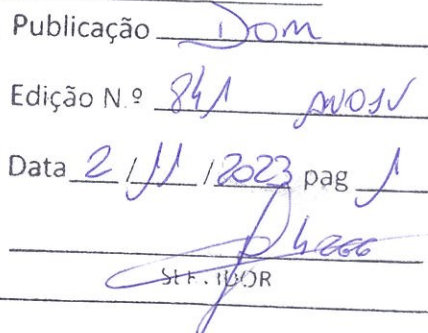 Publicação Dom
Edição N.º 841
Data 2/11/2023 pag 1
SERVIDOR